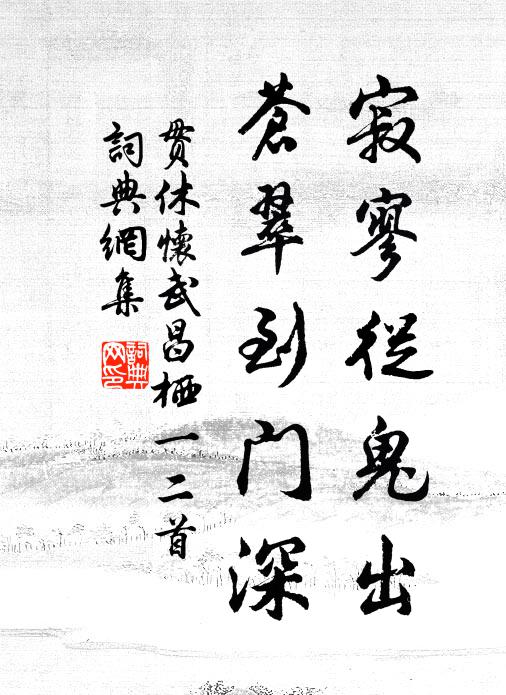 寂寥從鬼出
蒼翠到门深
貫休懷武昌栖一二首
詞典網集
詞典網印